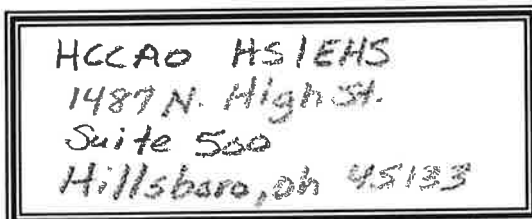 HCCAO HS/EHS
1487 N. High St.
Suite 500
Hillsboro, oh 45133